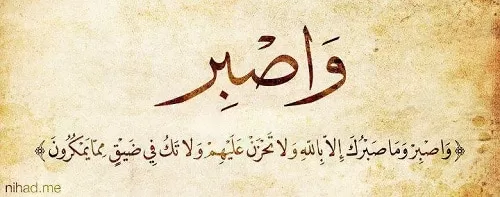 وَاصْبِر
﴿ وَاصْبِرْ وَمَا صَبْرُكَ إِلاَّ بِاللّهِ وَلاَ تَحْزَنْ عَلَيْهِمْ وَلاَ تَكُ فِي ضَيْقٍ مِمَّا يَمْكُرُونَ ﴾
nihad.me